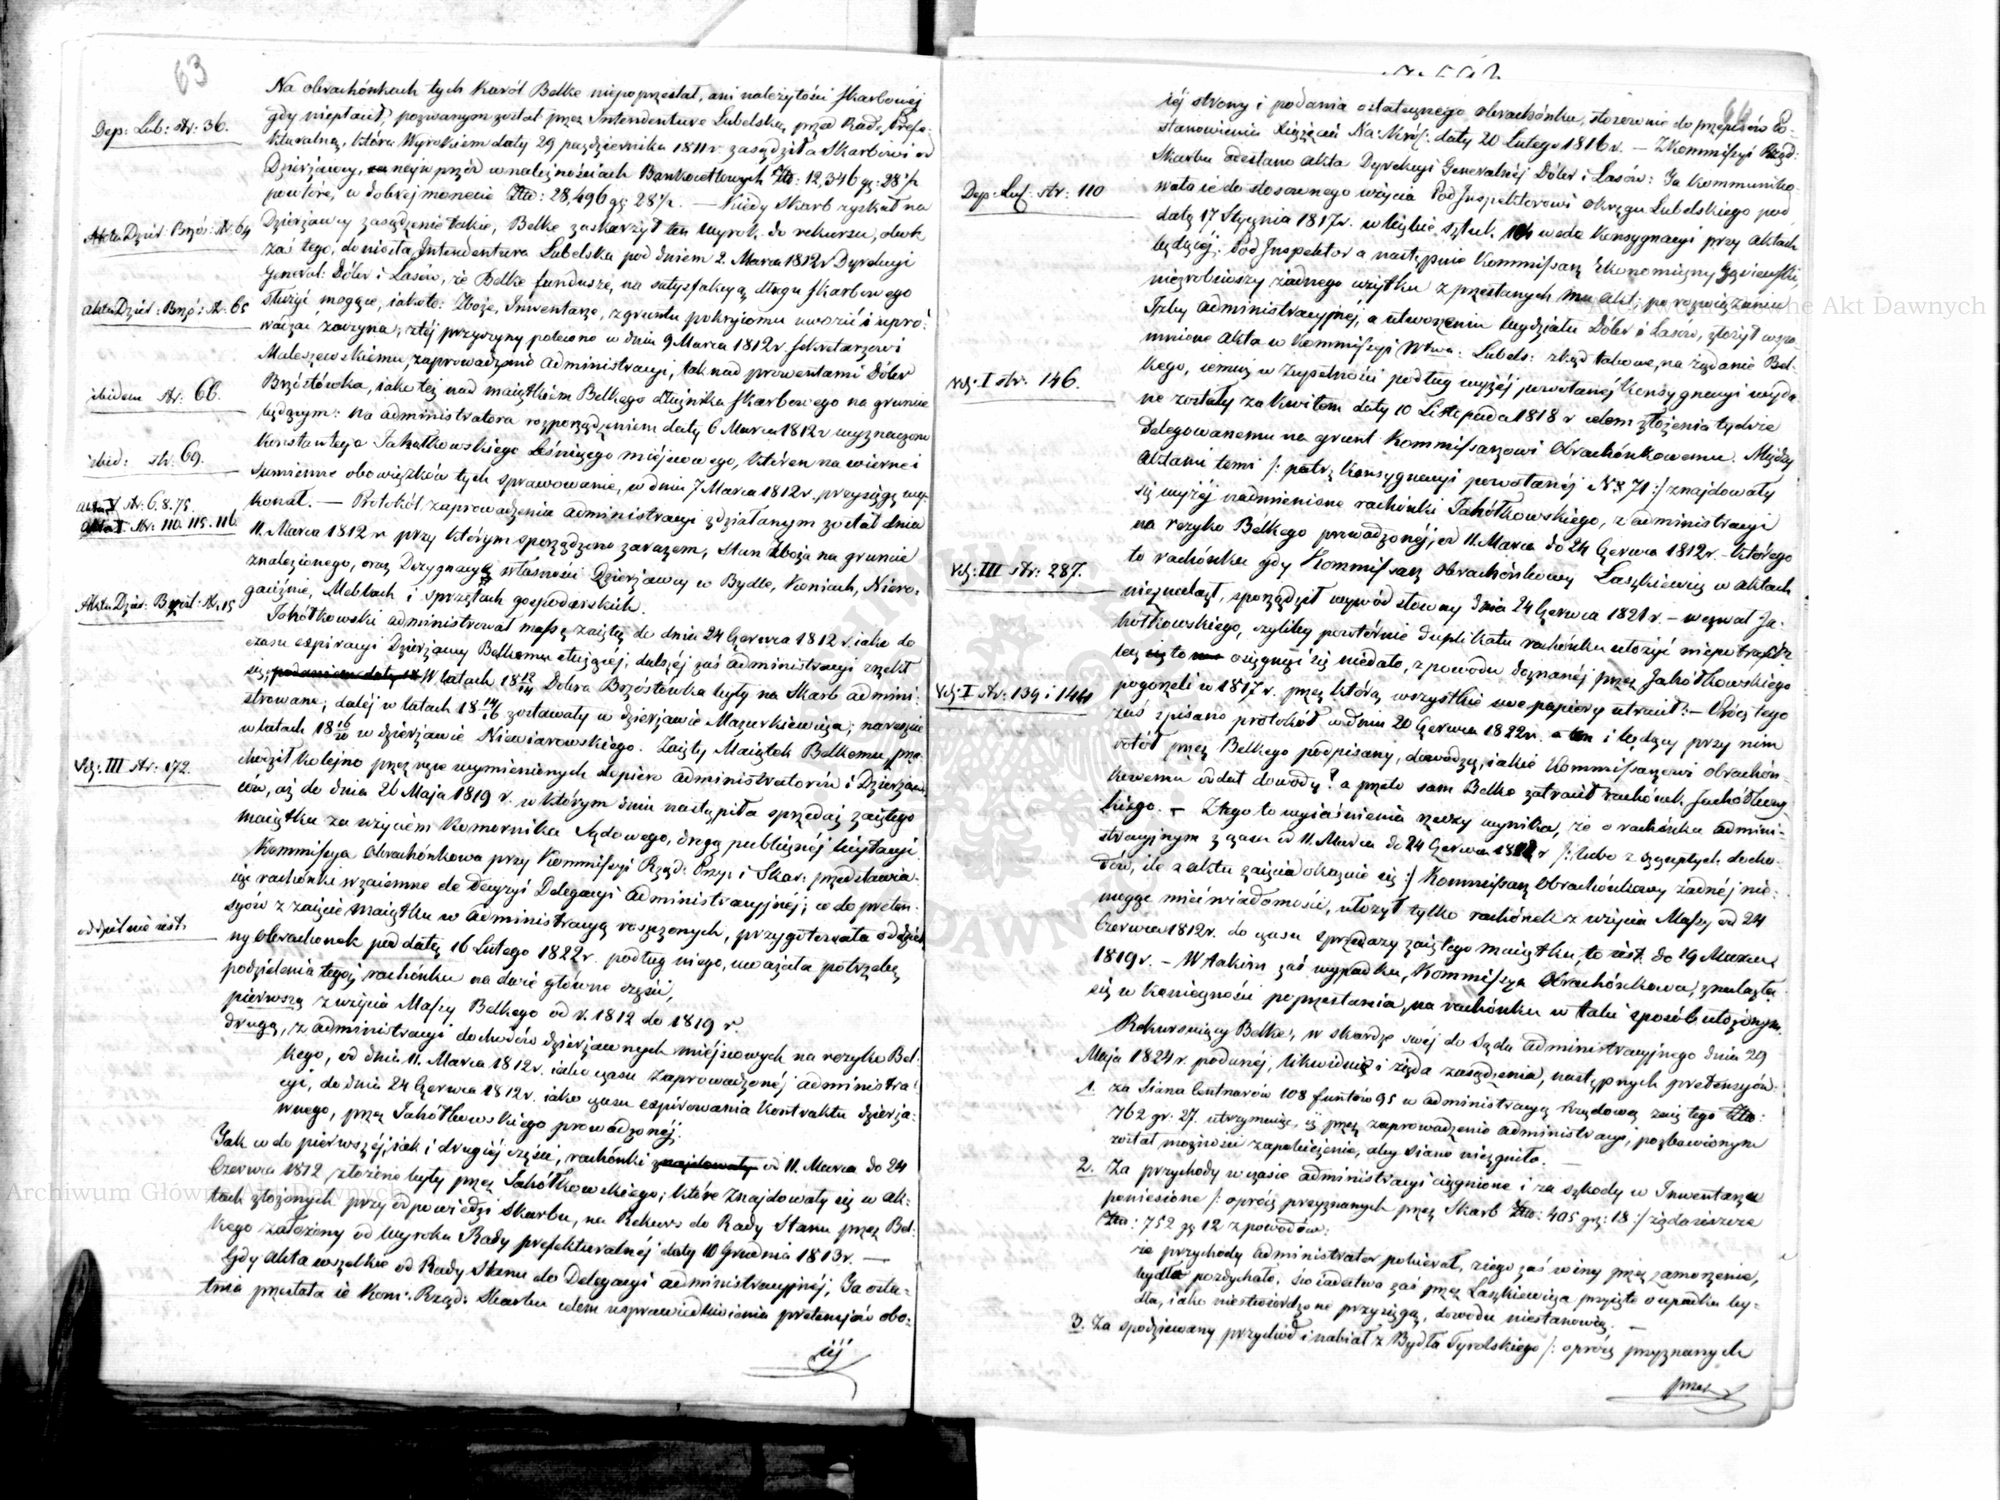 63
Na obrachónkach tych Karól Belke niepoprzestał, ani należytości skarbowéj
Dep: Lub: str: 36.
gdy niepłacił, pozwanym został przez Intendenturę Lubelską, przed Radę Prefe-
kturalną, która Wyrokiem daty 29 października 1811 r. zasądziła Skarbowi od
Dzierżawcy, naprzód w należnościach Bankocetlowych Złto: 12,346 gr: 28 1/2
powtóre, w dobréj monecie Złto: 28,496 gr 28 1/2. — Kiedy Skarb zyskał na
Akta Dzier: Brzós: str. 64
Dzierżawcy zasądzenie takie, Belke zaskarżył ten wyrok do rekursu, obok
zaś tego, doniosła Intendentura Lubelska pod dniem 2. Marca 1812 r Dyrekcyi
General: Dóbr i Lasów, że Belke fundusze, na satysfakcyą długu skarbowego
Akta Dzier: Brzó: str. 65
służyć mogące, iakoto: Zboże, Inwentarze, z gruntu pokryiomu uwozić i upro-
wadzać zaczyna; z téj przyczyny polecono w dniu 9 Marca 1812 r. Sekretarzowi
Maleszewskiemu, zaprowadzenie administracyi, tak nad prowentami Dóbr
ibidem str. 66.
Brzóstówka, iako téż nad maiątkiem Belkego dłużnika skarbowego na gruncie
będącym: na administratora rozporządzeniem daty 6 Marca 1812 r wyznaczono
Konstantego Jakótkowskiego Leśniczego mieyscowego, któren na wierne i
ibid: str. 69.
sumienne obowiązków tych sprawowanie, w dniu 7 Marca 1812 r. przysięgę wy-
Akta V str. 6. 8. 75.
konał. — Protokół zaprowadzenia administracyi zdziałanym został dnia
Akta I str: 110. 115. 116.
11. Marca 1812 r przy którym sporządzono zarazem, Stan Zboża na gruncie
znalezionego, oraz Dezygnacyą własności Dzierżawcy w Bydle, Koniach, Niero-
gaciźnie, Meblach i sprzętach gospodarskich.
Jakótkowski administrował massę zaiętą do dnia 24 Czerwca 1812 r. iako do
czasu expiracyi Dzierżawy Belkemu służącéj, dalszéj zaś administracyi zrzekł
się. W latach 18 12/14 Dobra Brzóstówka były na Skarb admini-
strowane; daléj w latach 18 14/16 zostawały w dzierżawie Mazurkiewicza; nareszcie
w latach 18 16/20 w dzierżawie Niewiarowskiego. Zaięty Maiątek Belkemu prze-
Vol: III str: 172.
chodził kolejno przez ręce wymienionych dopiero administratorów i Dzierżaw-
ców, aż do dnia 26 Maja 1819 r. w którym dniu nastąpiła sprzedaż zaiętego
maiątku za użyciem Komornika Sądowego, drogą publicznéj licytacyi.
Kommissya Obrachónkowa przy Kommissyi Rząd: Przy: i Skar: przedstawia-
iąc rachónki wzaiemne do Decyzyi Delegacyi administracyjnéj; co do preten-
syów z zaięcia maiątku w administracyą roszczonych, przygotowała oddziel-
ny Obrachonek pod datą 16 Lutego 1822 r. podług niego, uważała potrzebę
podzielenia tegoż rachónku na dwie główne części,
pierwszą z użycia Massy Belkego od r. 1812 do 1819 r.
drugą, z administracyi dochodów dzierżawnych mieyscowych na rezyko Bel-
kego, od dnia 11. Marca 1812 r. iako czasu zaprowadzonéj administra-
cyi, do dnia 24 Czerwca 1812 r. iako czasu expirowania kontraktu dzierża-
wnego, przez Jakótkowskiego prowadzonéj.
Jak w do pierwszéj, iak i drugiéj części, rachónki od 11. Marca do 24
Czerwca 1812 złożone były przez Jakótkowskiego; które znajdowały się w ak-
tach złożonych przy odpowiedzi Skarbu, na Rekurs do Rady Stanu przez Bel-
kego założony od Wyroku Rady prefekturalnéj daty 10 Grudnia 1813 r. —
Gdy akta wszelkie od Rady Stanu do Delegacyi administracyjnéj, Ja osta-
tnia przesłała ie Kom: Rząd: Skarbu celem usprawiedliwienia pretensyów obo-
iéj
iéj strony i podania ostatecznego obrachónku, stosownie do przepisów Po-
stanowienia Xiążęcia Na: daty 20 Lutego 1816 r. — Z Kommissyi Rząd:
Skarbu odesłano akta Dyrekcyi Generalnéj Dóbr i Lasów: Ja kommuniko-
Dep: Lub: str: 110
wała ie do stosownego użycia Pod Inspektorowi okręgu Lubelskiego pod
datą 17 Stycznia 1817 r. w liczbie sztuk 104 wedle konsygnacyi przy aktach
będącéj; Pod Inspektor a następnie Kommissarz Ekonomiczny
niezrobiwszy żadnego użytku z przesłanych mu akt, po rozwiązaniu
Izby administracyjnéj, a utworzeniu wydziału Dóbr i Lasów, złożył wspo-
mnione akta w Kommissyi Wtwa: Lubels: zkąd takowe, na żądanie Bel-
Vol: I str: 146.
kego, iemuż w zupełności podług wyżéj powołanéj konsygnacyi wyda-
ne zostały za kwitem daty 10 Listopada 1818 r celem złożenia tychże
Delegowanemu na grunt Kommissarzowi Obrachónkowemu. Między
Aktami temi /: patrz konsygnacyi powołanéj N° 71 :/ znajdowały
się wyżéj nadmienione rachónki Jakótkowskiego, z administracyi
na rezyko Belkego prowadzonéj, od 11. Marca do 24 Czerwca 1812 r. — Którego
Vol: III str: 287.
to rachónku gdy Kommissarz Obrachónkowy Laszkiewicz w aktach
nieznalazł, sporządził wywód słowny dnia 24 Czerwca 1821 r. — wezwał Ja-
kótkowskiego, czyliby powtórnie duplikatu rachónku ułożyć niepotrafił?
lecz to osięgnąć się niedało, z powodu doznanéj przez Jakótkowskiego
Vol: I str: 139 i 144
pogorzeli w 1817 r. przez którą wszystkie swe papiery utracił. — Prócz tego
zaś spisano protokół w dniu 20 Czerwca 1822 r. i będący przy nim
rotół przez Belkego podpisany, dowodzą, iakie Kommissarzowi Obrachón-
kowemu oddał dowody? a przeto sam Belke zatracił rachónek Jachótkow-
skiego. — Z tego to wyiaśnienia rzeczy wynika, że o rachónku admini-
stracyjnym z czasu od 11. Marca do 24 Czerwca 1812 r /: lubo z szczupłych docho-
dów, ile z aktu zaięcia okazuie się :/ Kommissarz Obrachónkowy żadnéj nie-
mogąc mieć wiadomości, ułożył tylko rachónek z użycia Massy od 24
Czerwca 1812 r. do czasu sprzedaży zaiętego maiątku, to iest. do 19 Marca
1819 r. — W takim zaś wypadku, Kommissya Obrachónkowa, znalazła
się w konieczności poprzestania, na rachónku w taki sposób ułożonym.
Rekursuiący Belke, w skardze swéj do Sądu administracyjnego dnia 29
Maja 1824 r. podanéj, likwiduie i żąda zasądzenia, następnych pretensyów
1. za Siana Centnarów 108 funtów 95 w administracyą Rządową zaiętego Złto:
762 gr: 27. utrzymuiąc, iż przez zaprowadzenie administracyi, pozbawionym
został możności zapobieżenia, aby siano niezgniło. —
2. Za przychody w czasie administracyi ciągnione i za szkody w Inwentarzu
poniesione /: oprócz przyznanych przez Skarb Złto: 405 gr: 18 :/ żąda ieszcze
Złto: 752 gr 12 z powodów:
że przychody administrator pobierał, z iego zaś winy przez zamorzenie,
bydło pozdychało. świadectwa zaś przez Laszkiewicza przyięte o upadku by-
dła, iako niestwierdzone przysięgą, dowodu niestanowią. —
3. Za spodziewany przychód i nabiał z Bydła Tyrolskiego /: oprócz przyznanych
przez
Archiwum Główne Akt Dawnych
Archiwum Główne Akt Dawnych